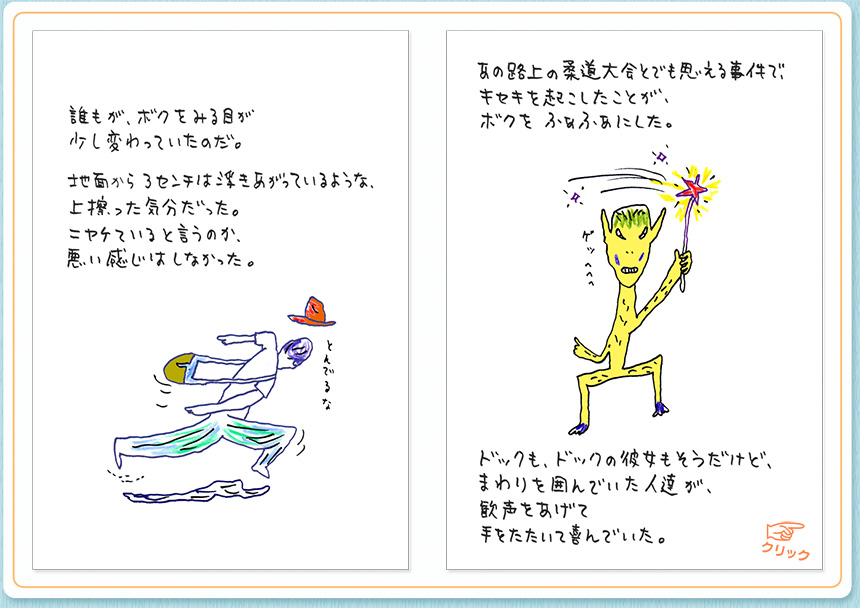 誰もが、ボクをみる目が
少し変わっていたのだ。
地面から3センチは浮きあがっているような、
上擦った気分だった。
ニヤケていると言うのか、
悪い感じはしなかった。
とんでるな
あの路上の柔道大会とでも思える事件で、
キセキを起こしたことが、
ボクを ふぁふぁにした。
ゲッへへへ
ドックも、ドックの彼女もそうだけど、
まわりを囲んでいた人達が、
歓声をあげて
手をたたいて喜んでいた。
クリック